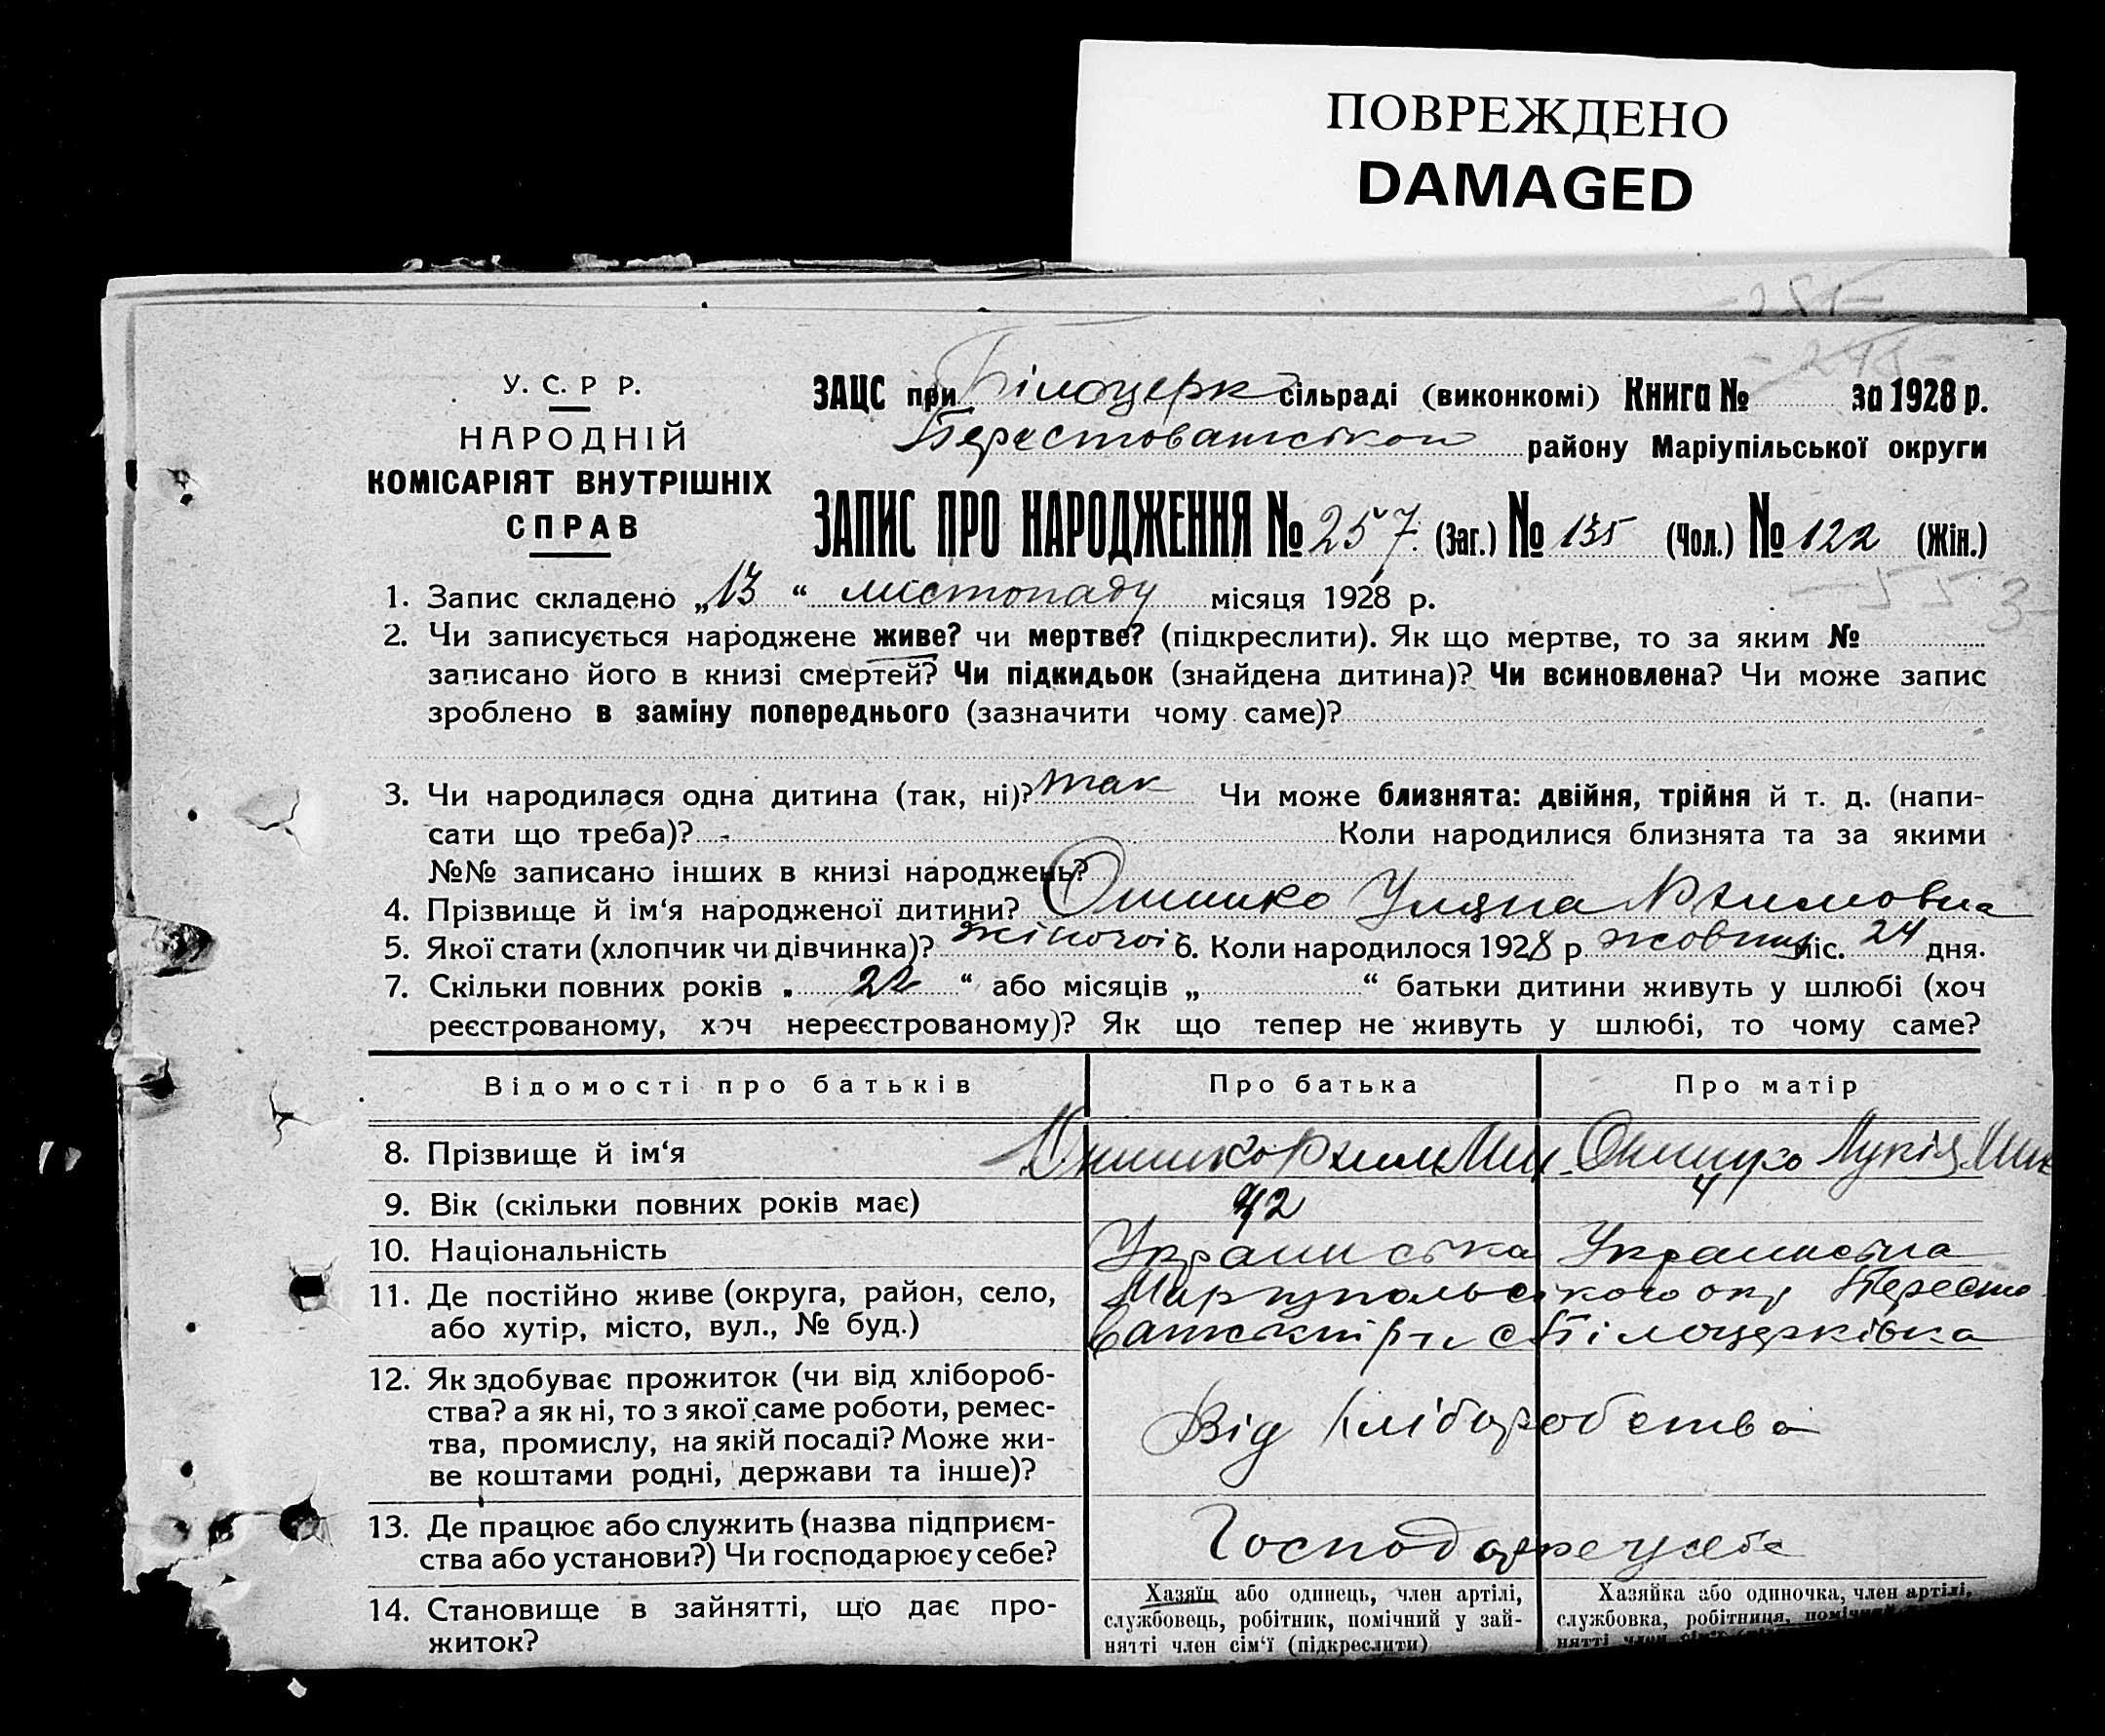 ПОВРЕЖДЕНО
DAMAGED
У. С. Р Р.
НАРОДНІЙ
КОМІСАРІЯТ ВНУТРІШНІХ
СПРАВ
ЗАЦС при Білоцерк сільраді (виконкомі) Книга № за 1928 р.
району Маріупільської округи
ЗАПИС ПРО НАРОДЖЕННЯ № 257 (Заг.) № 135 (Чол.) № 122 (Жін.)
1. Запис складено „13“ листопаду місяця 1928 р.
2. Чи записується народжене живе? чи мертве? (підкреслити). Як що мертве, то за яким №
записано його в книзі смертей? Чи підкидьок (знайдена дитина)? Чи всиновлена? Чи може запис
зроблено в заміну попереднього (зазначити чому саме)?
3. Чи народилася одна дитина (так, ні)? так Чи може близнята: двійня, трійня й т. д. (напи-
сати що треба)? - Коли народилися близнята та за якими
№№ записано інших в книзі народжень?
4. Прізвище й ім‘я народженої дитини? Онишко Уляна
5. Якої стати (хлопчик чи дівчинка)? жіночої 6. Коли народилося 1928 р. міс. 24 дня.
7. Скільки повних років „22“ або місяців „ “ батьки дитини живуть у шлюбі (хоч
реєстрованому, хоч нереєстрованому)? Як що тепер не живуть у шлюбі, то чому саме?
Відомості про батьків Про батька Про матір
8. Прізвище й ім‘я Онишко Онишко Лукія
9. Вік (скільки повних років має) 42
10. Національність Украинська Украинська
11. Де постійно живе (округа, район, село,
або хутір, місто, вул., № буд.) Білоцерківка
12. Як здобуває прожиток (чи від хлібороб-
ства? а як ні, то з якої саме роботи, ремес-
тва, промислу, на якій посаді? Може жи-
ве коштами родні, держави та інше)?
Від хліборобства
13. Де працює або служить (назва підприєм-
ства або установи?) Чи господарює у себе?
14. Становище в зайнятті, що дає про-
житок?
Хазяїн або одинець, член артілі,
службовець, робітник, помічний у зай-
нятті член сім‘ї (підкреслити)
Хазяйка або одиночка, член артілі,
службовка, робітниця,
нятті член